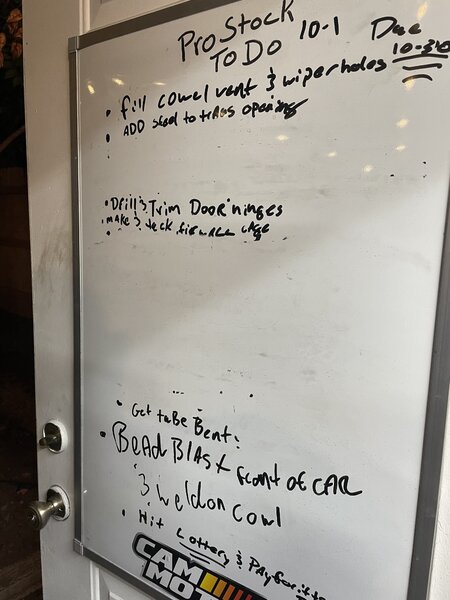 Pro Stock 10-1 Due
To Do 10-30
• fill cowel vent & wiper holes
• ADD steel to trans opening
•
• Drill & Trim Door hinges
• make & tack firewall cage
•
• Get tube Bent:
• Bead Blast front of CAR
& weld on cowl
• Hit Lottery & Pay for it
CAM
MO